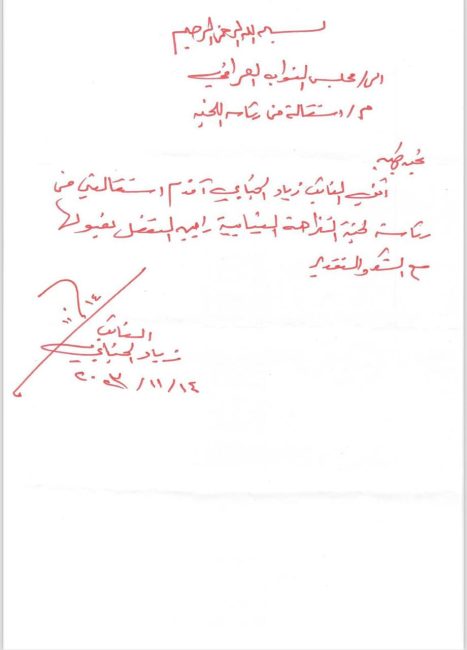 بسم الله الرحمن الرحيم
الى/ مجلس النواب العراقي
م/ استقالة من رئاسة اللجنة
تحية طيبة
اني النائب زياد الجنابي أقدم استقالتي من
رئاسة لجنة النزاهة النيابية راجين التفضل بقبولها
مع الشكر والتقدير
١١/١٤
النائب
زياد الجنابي
٢٠٢٣/١١/١٤